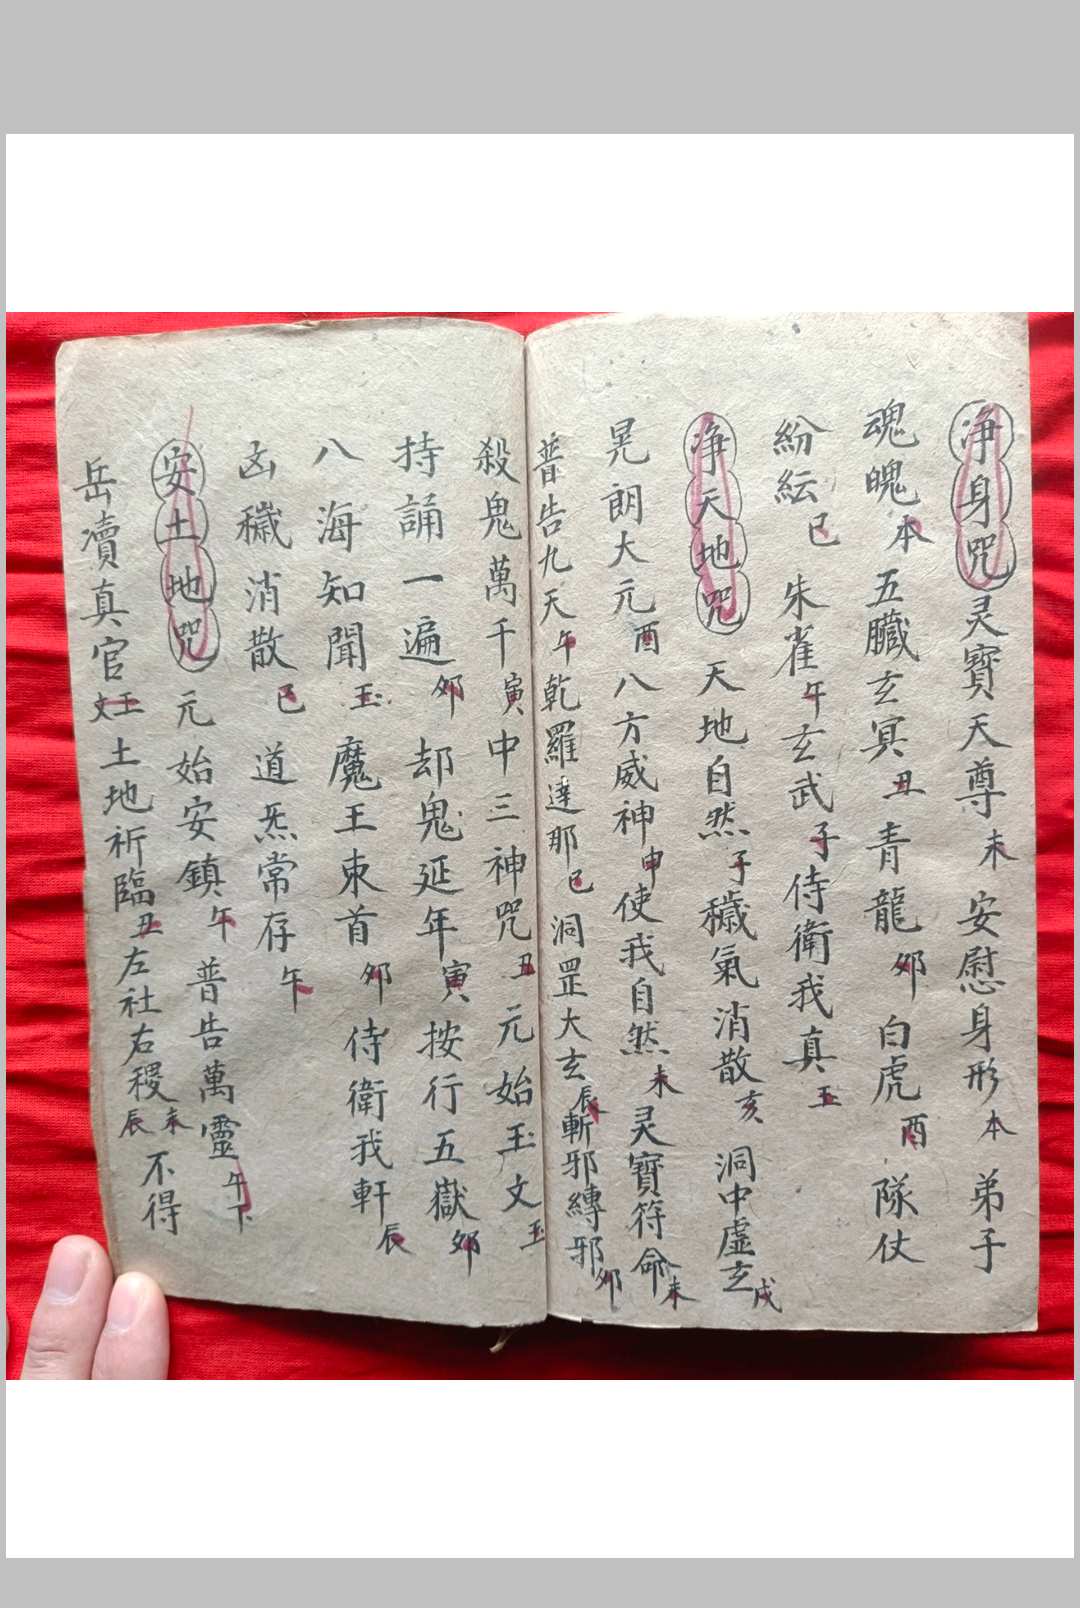 净身咒灵寳天尊未安慰身形本弟子
魂魄本五臟玄冥丑青龍夘白虎酉隊仗
紛紜巳朱雀午玄武子侍衛我真玉
净天地咒天地自然子穢氣消散亥洞中虛玄戌
晃朗大元酉八方威神申使我自然未灵寳符命未
普告九天午乾羅達那巳洞罡大玄辰斬邪縳邪夘
殺鬼萬千寅中三神咒丑元始玉文玉
持誦一遍夘却鬼延年寅按行五嶽夘
八海知聞玉魔王束首夘侍衛我軒辰
凶穢消散巳道炁常存午
安土地咒元始安鎮午普告萬靈午下
岳瀆真官玉文土地祈臨丑左社右稷未辰不得